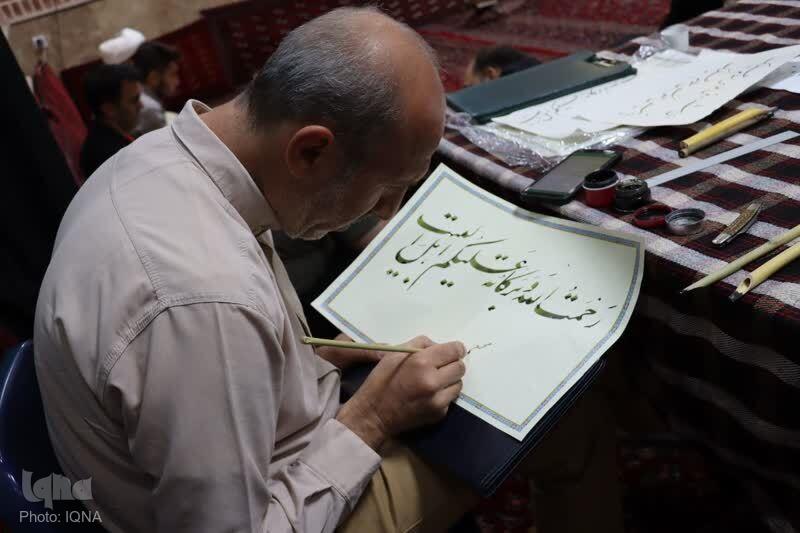 رَحمتُ الله وَبَرَکاتُهُ عَلیکم اهل البیت
iqna
Photo: IQNA